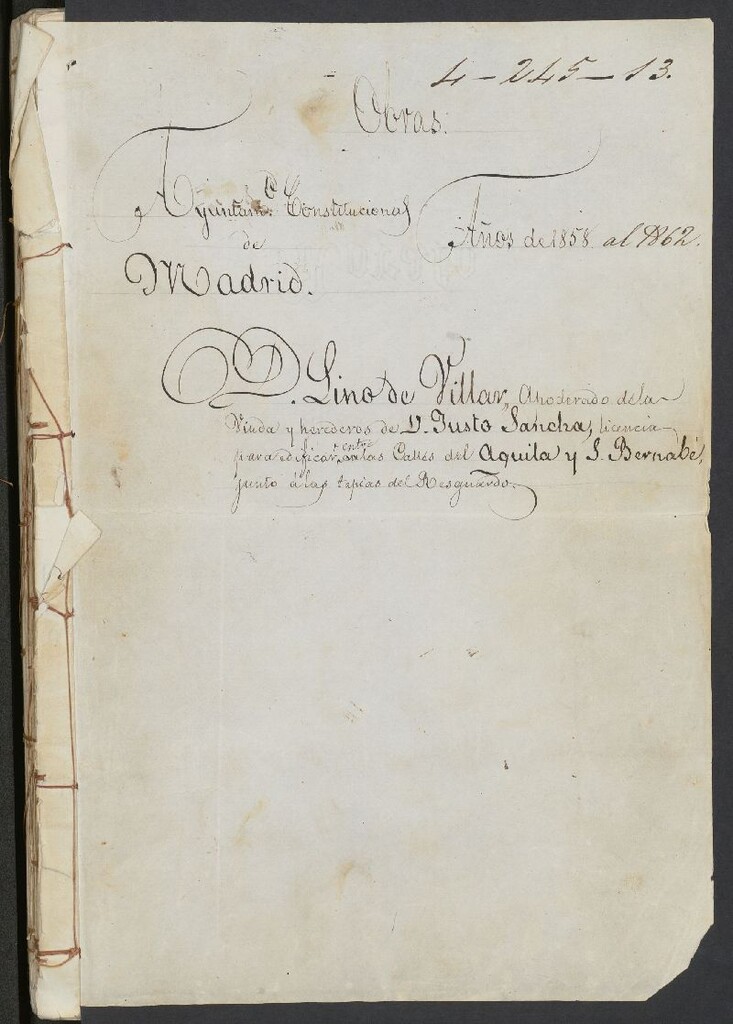 4-245-13.
Obras.
Ayuntam.to Constitucional
de
Madrid.
Años de 1858 al 1862.
D. Lino de Villar, Apoderado de la
Viuda y herederos de D. Justo Sancha, licencia
para edificar entre las Calles del Aguila y S. Bernabé,
junto á las tapias del Resguardo.